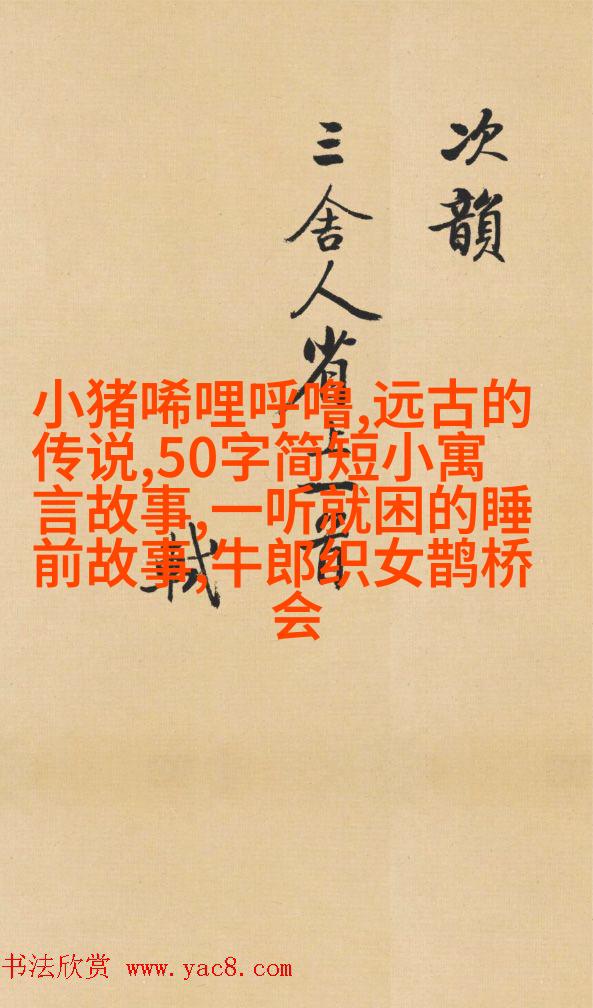 次韻
三舍人省上一首
軾
小猪唏哩呼噜,远古的
传说,50字简短小寓
言故事,一听就困的睡
前故事,牛郎织女鹊桥
会
书法欣赏 www.yac8.com